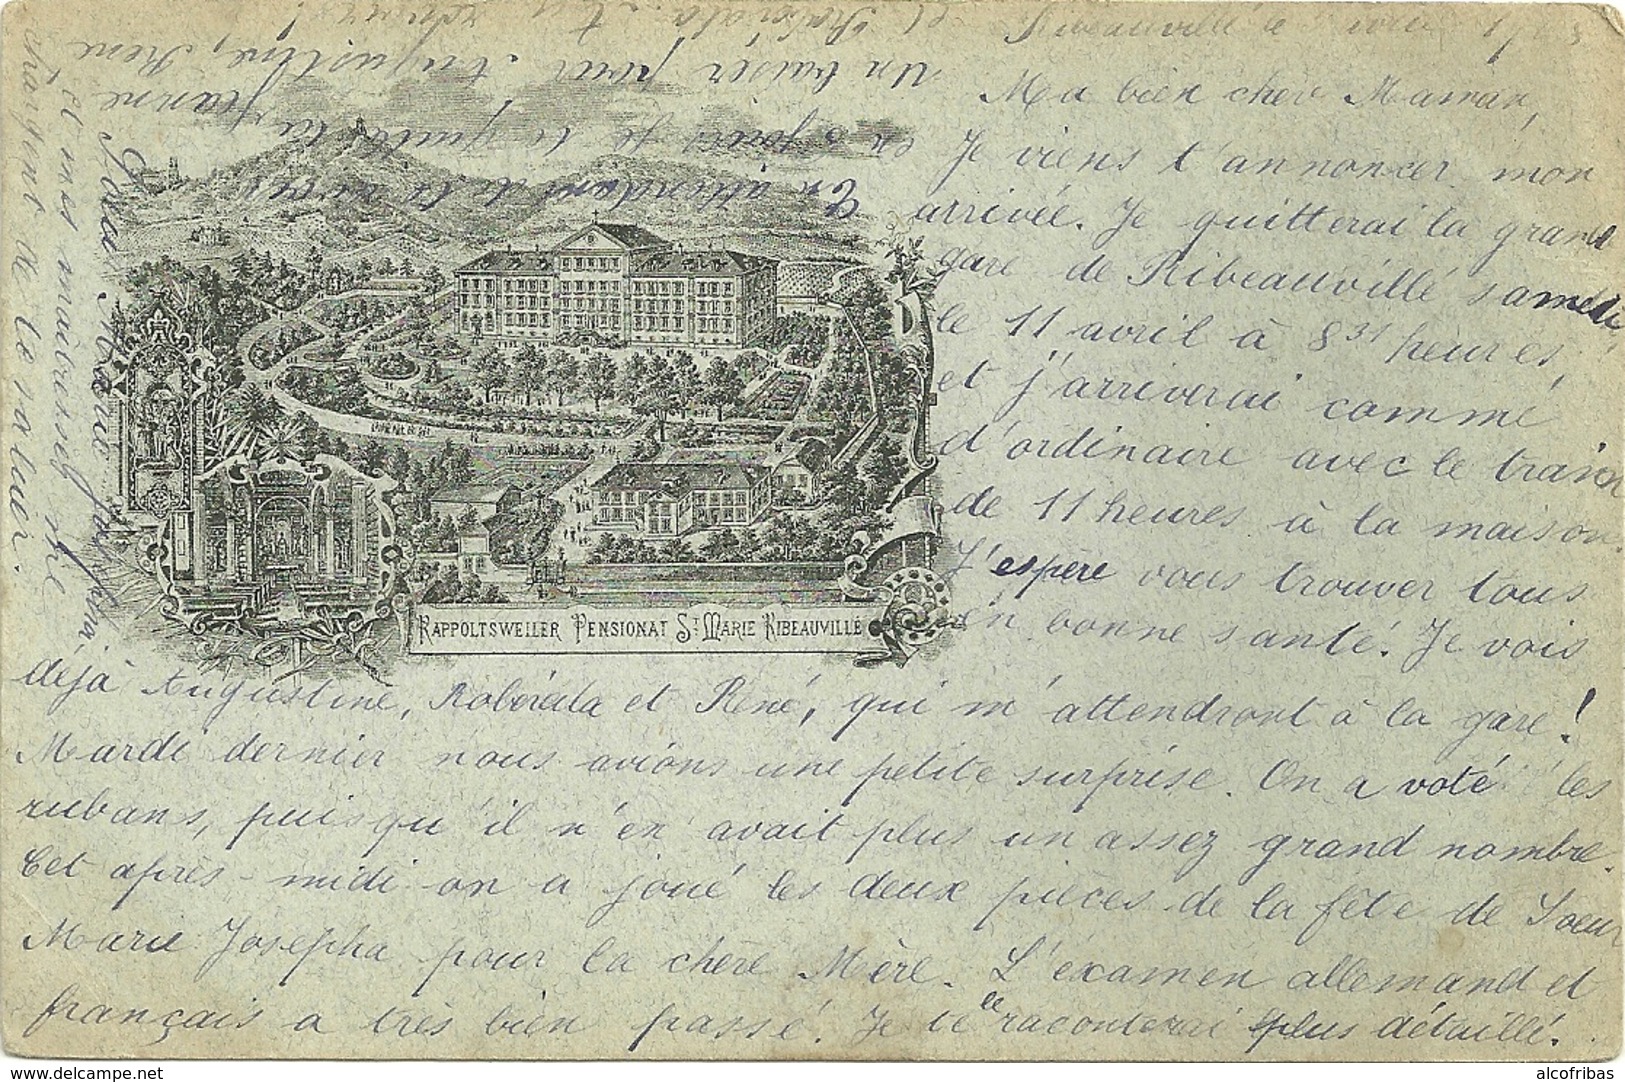 Ribeauvillé le
Ma bien cher Maman,
Je viens t'annoncer mon
arrivée. Je quitterai la grand
gare de Ribeauvillé samedi,
le 11 avril à 8 31 heures,
et j'arriverai commé
d'ordinaire avec le train
de 11 heures à la maison.
J'espère vous trouver tous
en bonne santé. Je vois
déjà Augustine, Roborata et René, qui m'attendront à la gare!
Mardi dernier nous avions une petite surprise. On a voté les
rubans, puisqu'il n'en avait plus un assez grand nombre.
Cet après-midi on a joué les deux pièces de la fête de Soeur
Marie Josepha pour la chère Mère. L'examen allemand et
français a très bien passé. Je te le raconterai plus détaillé.
Soeur Marie Josephina
et mes maîtresses me
chargent de te saluer.
En attendant de te revoir
en 8 jours je te quitte ta Jeanne
Un baiser pour Augustine, René
et Roborata.
RAPPOLTSWEILER PENSIONAT ST MARIE RIBEAUVILLÉ
delcampe.net
alcofribas